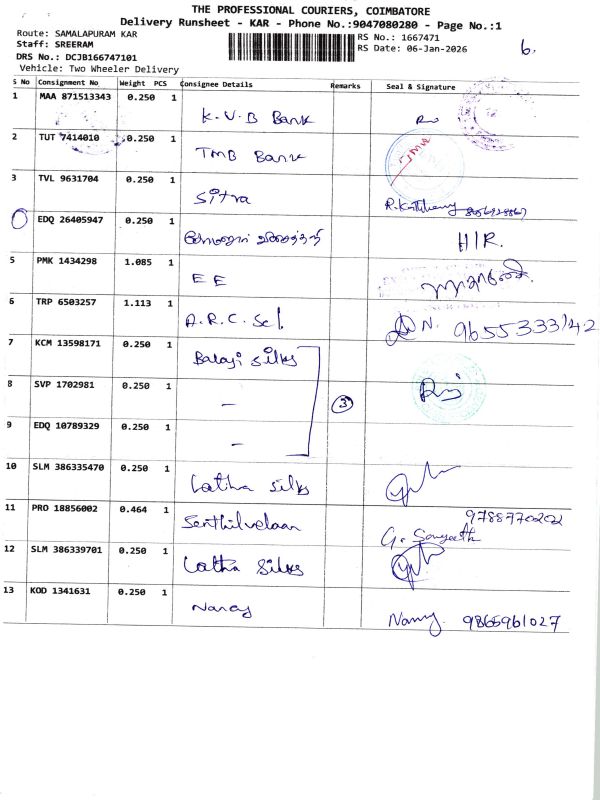 THE PROFESSIONAL COURIERS, COIMBATORE
Delivery Runsheet - KAR - Phone No.:9047080280 - Page No.:1
Route: SAMALAPURAM KAR
Staff: SREERAM
DRS No.: DCJB166747101
Vehicle: Two Wheeler Delivery
RS No.: 1667471
RS Date: 06-Jan-2026
6.
S No Consignment No Weight PCS Consignee Details Remarks Seal & Signature
1 MAA 871513343 0.250 1 K.V.B Bank
2 TUT 7414010 0.250 1 TMB Bank
3 TVL 9631704 0.250 1 Sitra
EDQ 26405947 0.250 1 H/R.
5 PMK 1434298 1.085 1 E E
6 TRP 6503257 1.113 1 A.R.C. Scl. N. 9655333142
7 KCM 13598171 0.250 1 Balaji silks
8 SVP 1702981 0.250 1 - 3
9 EDQ 10789329 0.250 1 -
10 SLM 386335470 0.250 1 Latha silks
11 PRO 18856002 0.464 1 Senthilvelaan 9788770202
G. Sangeeth
12 SLM 386339701 0.250 1 Latha Silks
13 KOD 1341631 0.250 1 9865961027